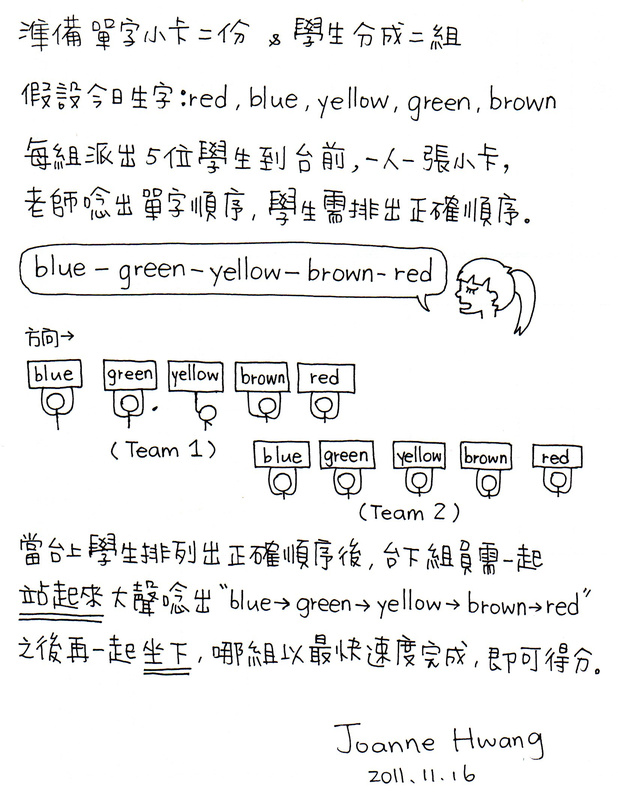 準備單字小卡二份 & 學生分成二組
假設今日生字:red, blue, yellow, green, brown
每組派出5位學生到台前,一人一張小卡,
老師唸出單字順序,學生需排出正確順序。
blue - green - yellow - brown - red
方向→
blue green yellow brown red
(Team 1)
blue green yellow brown red
(Team 2)
當台上學生排列出正確順序後,台下組員需一起
站起來大聲唸出"blue→green→yellow→brown→red"
之後再一起坐下,哪組以最快速度完成,即可得分。
Joanne Hwang
2011.11.16